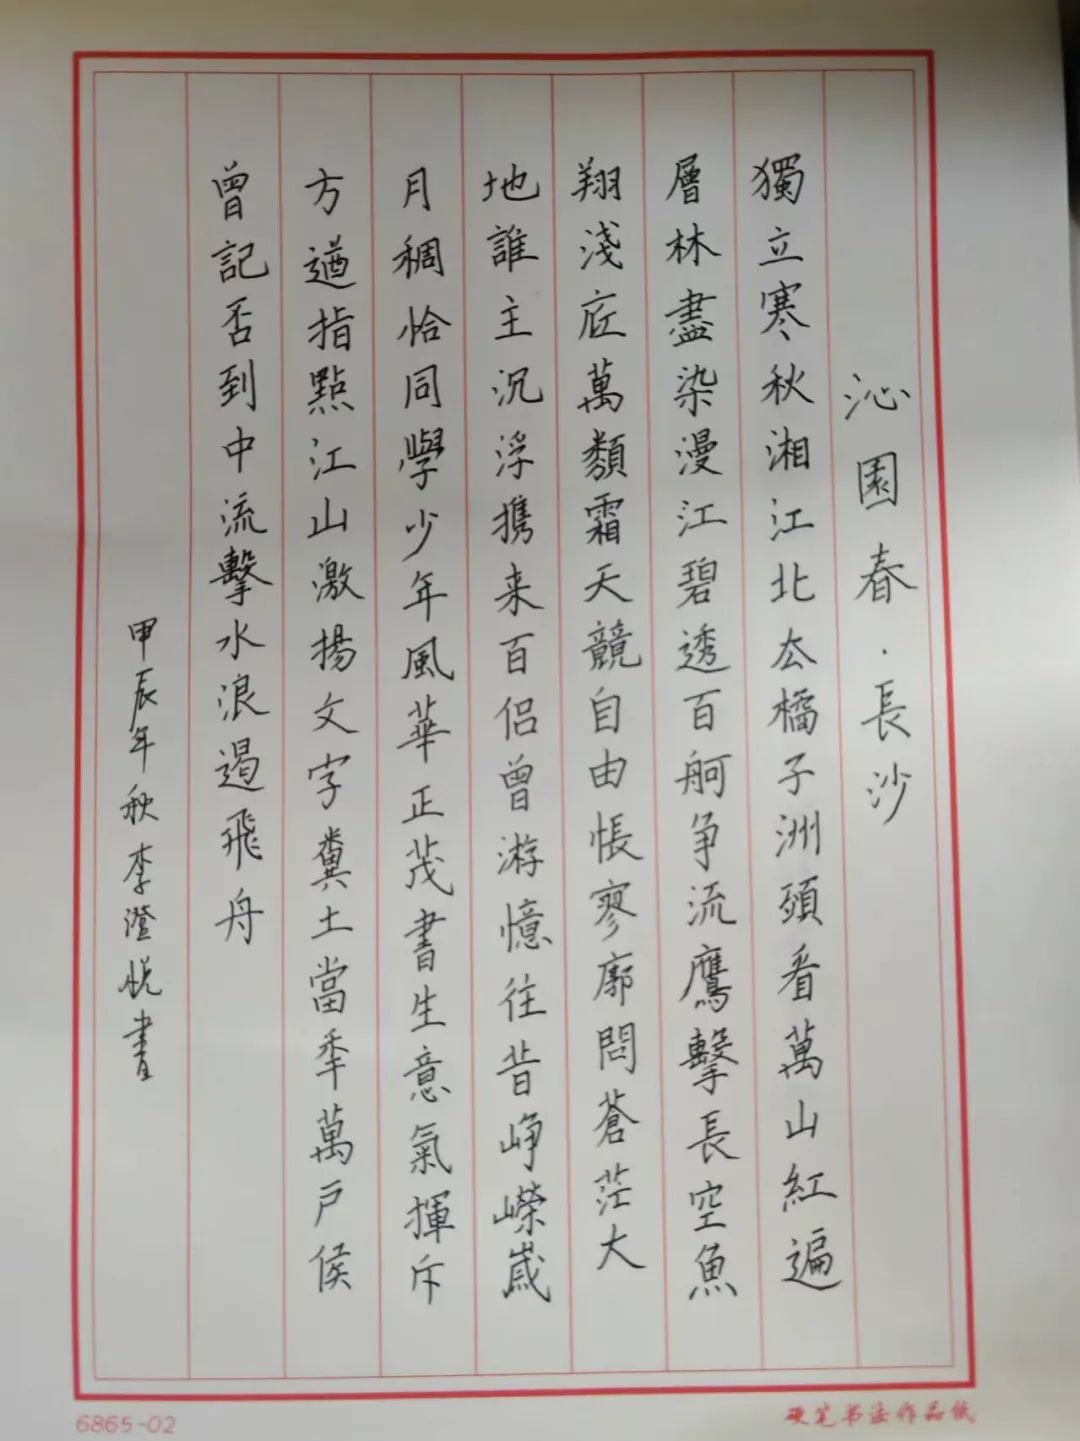 沁園春·長沙
獨立寒秋湘江北厺橘子洲頭看萬山紅遍
層林盡染漫江碧透百舸争流鷹擊長空魚
翔淺底萬類霜天競自由悵寥廓問蒼茫大
地誰主沉浮携来百侣曾游憶往昔峥嶸歲
月稠恰同學少年風華正茂書生意氣揮斥
方遒指點江山激揚文字糞土當秊萬戶侯
曾記否到中流擊水浪遏飛舟
甲辰年秋李澄悦書
6865-02
硬笔书法作品纸